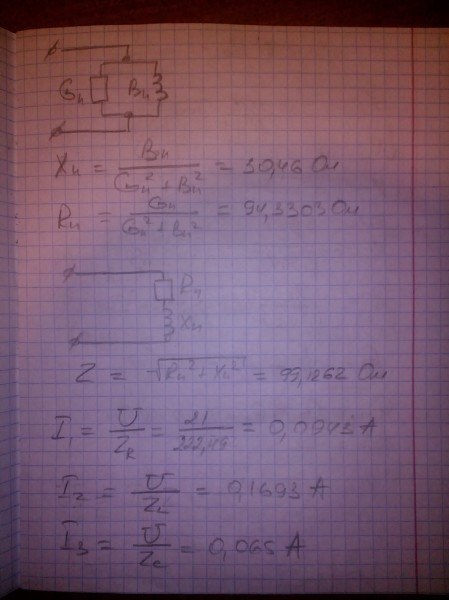 Gн Bн
Xн = Bн / (Gн² + Bн²) = 30,46 Ом
Rн = Gн / (Gн² + Bн²) = 94,3303 Ом
Rн
Xн
Z = √(Rн² + Xн²) = 99,1262 Ом
I₁ = U / Z_R = 21 / 222,419 = 0,0943 А
I₂ = U / Z_L = 0,1693 А
I₃ = U / Z_C = 0,065 А